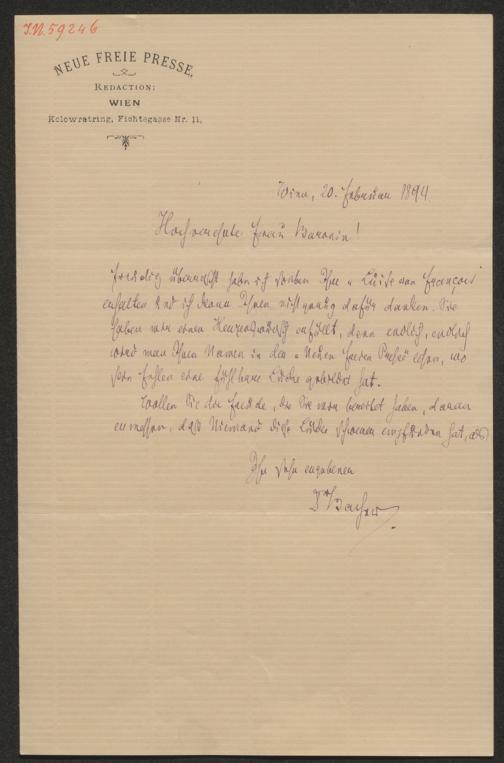 I.N. 59246
NEUE FREIE PRESSE.
REDACTION:
WIEN
Kolowratring, Fichtegasse Nr. 11.
Wien, 20. Februar 1894.
Hochverehrte Frau Baronin!
Freudig überrascht habe ich soeben Ihre „Luise von François"
erhalten und ich kann Ihnen nicht genug dafür danken. Sie
haben mir einen Herzenswunsch erfüllt, denn endlich, endlich
wird man Ihren Namen in der „Neuen Freien Presse" sehen, wo
sein Fehlen eine fühlbare Lücke gebildet hat.
Wollen Sie die Freude, die Sie mir bereitet haben, daran
ermessen, daß Niemand diese Lücke schwerer empfunden hat, als
Ihr sehr ergebener
Bacher